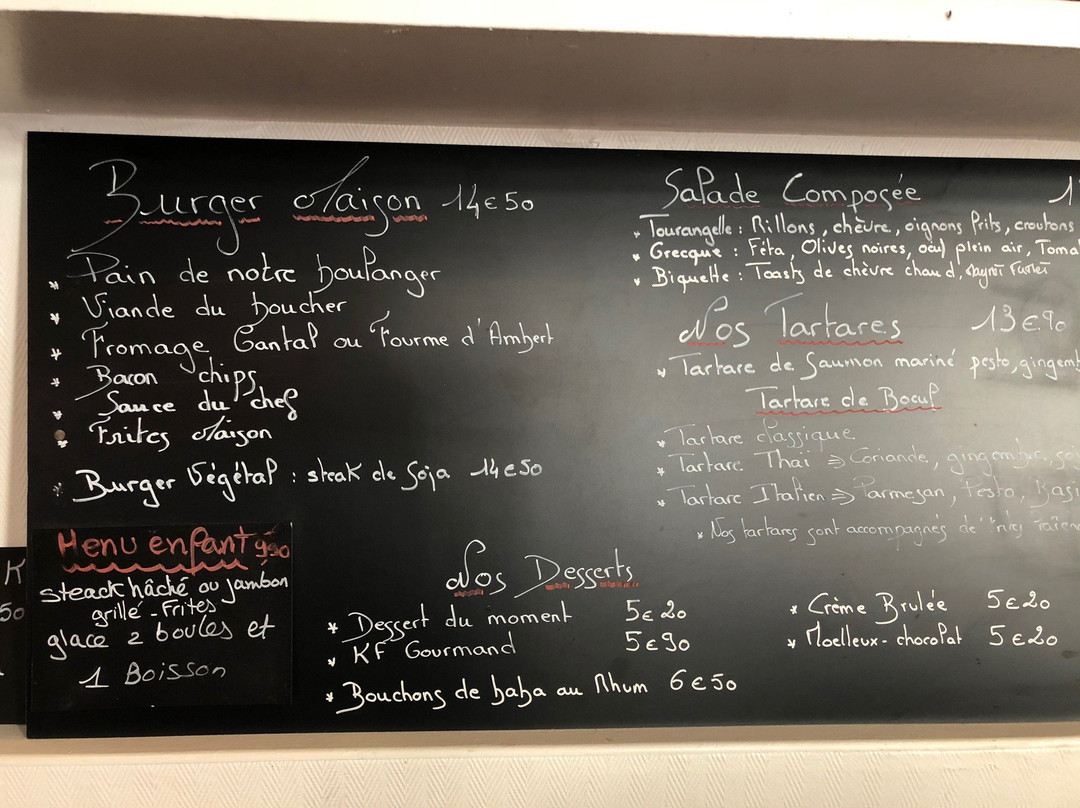 Burger Maison 14€50
* Pain de notre boulanger
* Viande du boucher
* Fromage Cantal ou Fourme d'Ambert
* Bacon chips
* Sauce du chef
* Frites Maison
* Burger Végétal : steak de Soja 14€50
Menu enfant 990
steack hâché ou jambon
grillé - Frites
glace 2 boules et
1 Boisson
K
50
Salade Composée 1
* Tourangelle : Rillons, chèvre, oignons frits, croutons
* Grecque : Féta, Olives noires, œuf plein air, Toma
* Biquette : Toasts de chèvre chaud,
Nos Tartares 13€90
* Tartare de Saumon mariné pesto, gingemb
Tartare de Boeuf
* Tartare classique
* Tartare Thaï => Coriande, gingembre, soj
* Tartare Italien => Parmesan, Pesto, Basi
* Nos tartares sont accompagnés de
Nos Desserts
* Dessert du moment 5€20
* KF Gourmand 5€90
* Bouchons de baba au Rhum 6€50
* Crème Brulée 5€20
* Moelleux - chocolat 5€20